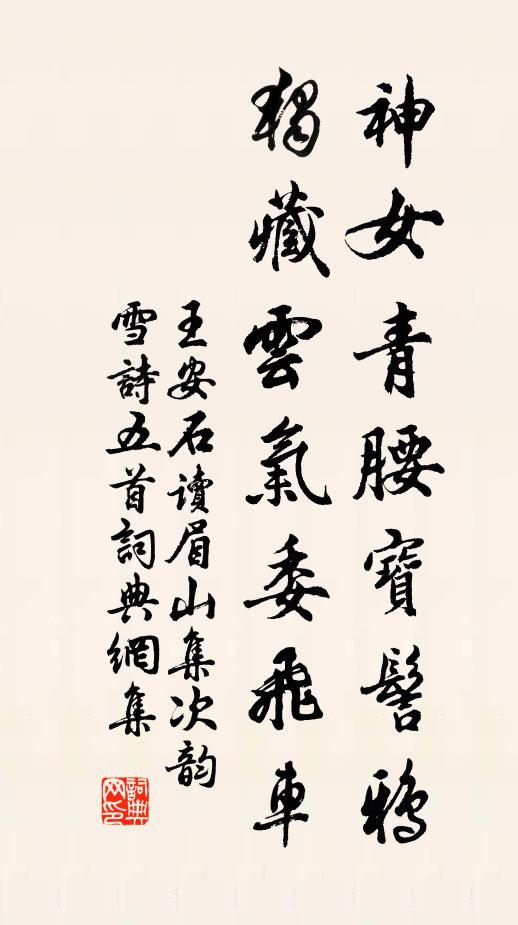 神女青腰寶髻鴉
獨藏雲氣委飛車
王安石讀眉山集次韵
雪詩五首詞典網集
詞典
网印